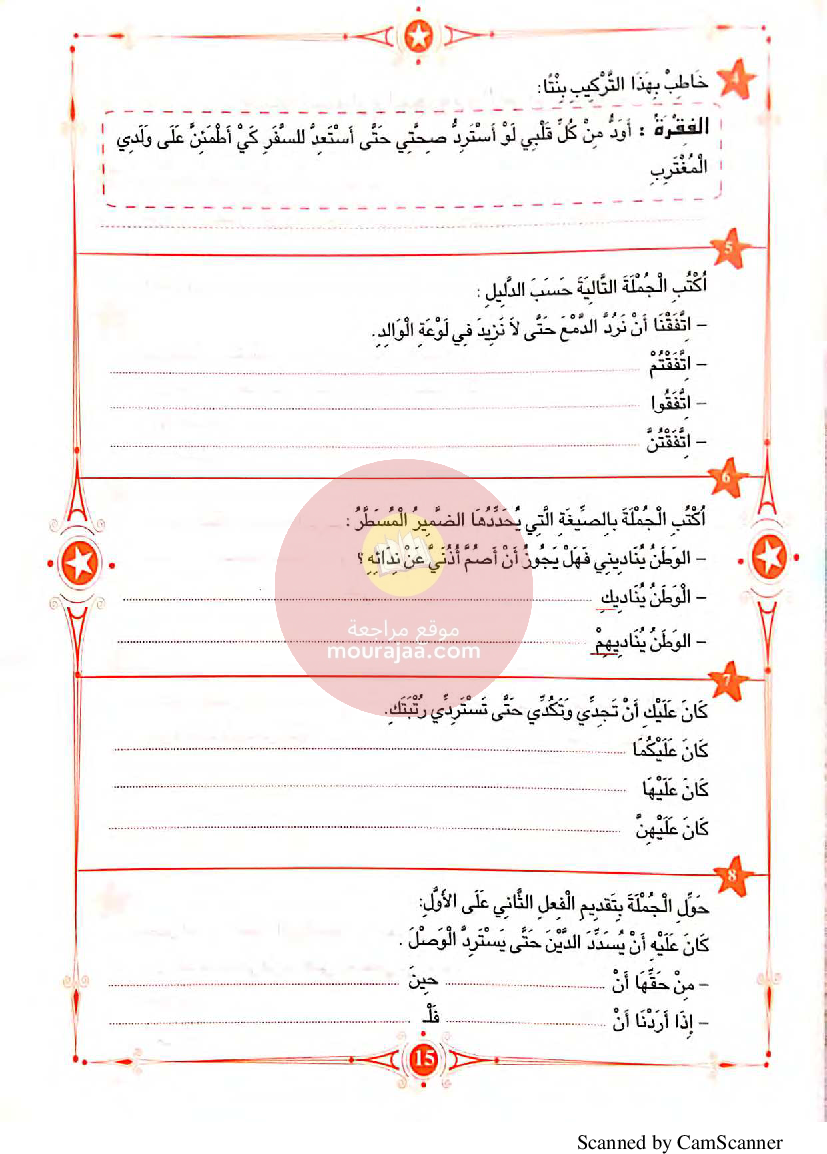 4 خَاطِبْ بِهَذَا التَّرْكِيبِ بِنْتًا:
الفِقْرَةُ : أَوَدُّ مِنْ كُلِّ قَلْبِي لَوْ أَسْتَرِدُّ صِحَّتِي حَتَّى أَسْتَعِدُّ للسَّفَرِ كَيْ أَطْمَئِنَّ عَلَى وَلَدِي
الْمُغْتَرِبِ
5
اُكْتُبِ الْجُمْلَةَ التَّالِيَةَ حَسَبَ الدَّلِيلِ :
– اِتَّفَقْنَا أَنْ نَرُدَّ الدَّمْعَ حَتَّى لاَ نَزِيدَ فِي لَوْعَةِ الْوَالِدِ.
– اِتَّفَقْتُمْ
– اِتَّفَقُوا
– اِتَّفَقْتُنَّ
6
اُكْتُبِ الْجُمْلَةَ بِالصِّيغَةِ الَّتِي يُحَدِّدُهَا الضَّمِيرُ الْمُسَطَّرُ :
– الوَطَنُ يُنَادِينِي فَهَلْ يَجُوزُ أَنْ أَصُمَّ أُذُنَيَّ عَنْ نِدَائِهِ ؟
– الْوَطَنُ يُنَادِيكِ
– الوَطَنُ يُنَادِيهِمْ
موقع مراجعة
mourajaa.com
7
كَانَ عَلَيْكِ أَنْ تَجِدِّي وَتَكُدِّي حَتَّى تَسْتَرِدِّي رُتْبَتَكِ.
كَانَ عَلَيْكُمَا
كَانَ عَلَيْهَا
كَانَ عَلَيْهِنَّ
8
حَوِّلِ الْجُمْلَةَ بِتَقْدِيمِ الْفِعْلِ الثَّانِي عَلَى الأَوَّلِ:
كَانَ عَلَيْهِ أَنْ يُسَدِّدَ الدَّيْنَ حَتَّى يَسْتَرِدَّ الْوَصْلَ .
– مِنْ حَقِّهَا أَنْ ........ حِينَ ........
– إِذَا أَرَدْنَا أَنْ ........ فَلْـ ........
15
Scanned by CamScanner